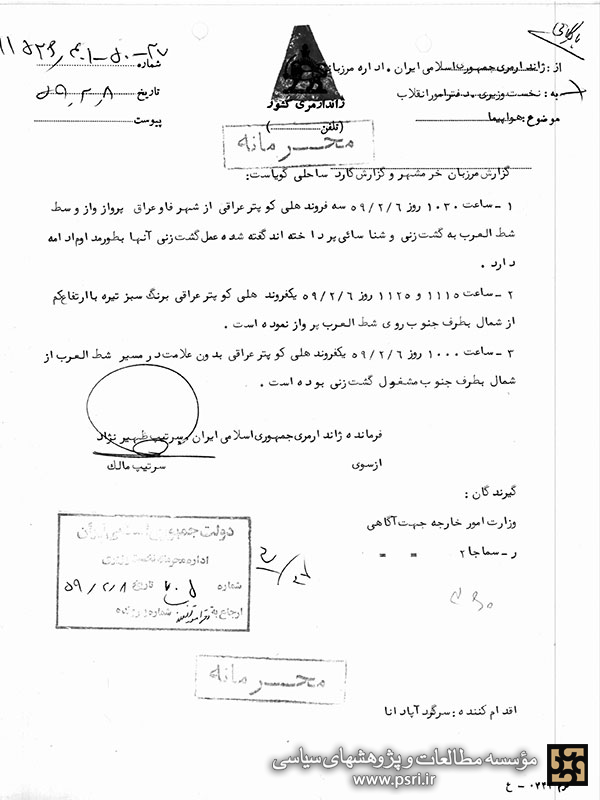 بایگانی
از : ژاندارمری جمهوری اسلامی ایران . اداره مرزبانی
به : نخست وزیری . دفتر امور انقلاب
موضوع : هواپیما
ژاندارمری کشور
(تلفن ............)
شماره
تاریخ ۵۹،۲،۸
پیوست
محرمانه
گزارش مرزبان خرمشهر و گزارش گارد ساحلی گویاست :
۱ - ساعت ۱۰۳۰ روز ۵۹/۲/۶ سه فروند هلی کوپتر عراقی از شهر فاو عراق پرواز و از وسط
شط العرب به گشت زنی و شناسائی پرداخته اند گفته شده عمل گشت زنی آنها بطور مداوم ادامه
دارد .
۲ - ساعت ۱۱۱۵ و ۱۱۲۵ روز ۵۹/۲/۶ یکفروند هلی کوپتر عراقی برنگ سبز تیره با ارتفاع کم
از شمال بطرف جنوب روی شط العرب پرواز نموده است .
۳ - ساعت ۱۰۰۰ روز ۵۹/۲/۶ یکفروند هلی کوپتر عراقی بدون علامت در مسیر شط العرب از
شمال بطرف جنوب مشغول گشت زنی بوده است .
فرمانده ژاندارمری جمهوری اسلامی ایران . سرتیپ ظهیرنژاد
از سوی سرتیپ مالک
گیرندگان :
وزارت امور خارجه جهت آگاهی
ر - سماجا ۲ " "
دولت جمهوری اسلامی ایران
اداره محرمانه نخست وزیری
شماره ۲۰۵ تاریخ ۵۹/۲/۸
ارجاع به دفتر امور انقلاب شماره پرونده
محرمانه
اقدام کننده : سرگرد آبادانا
مؤسسه مطالعات و پژوهشهای سیاسی
www.psri.ir